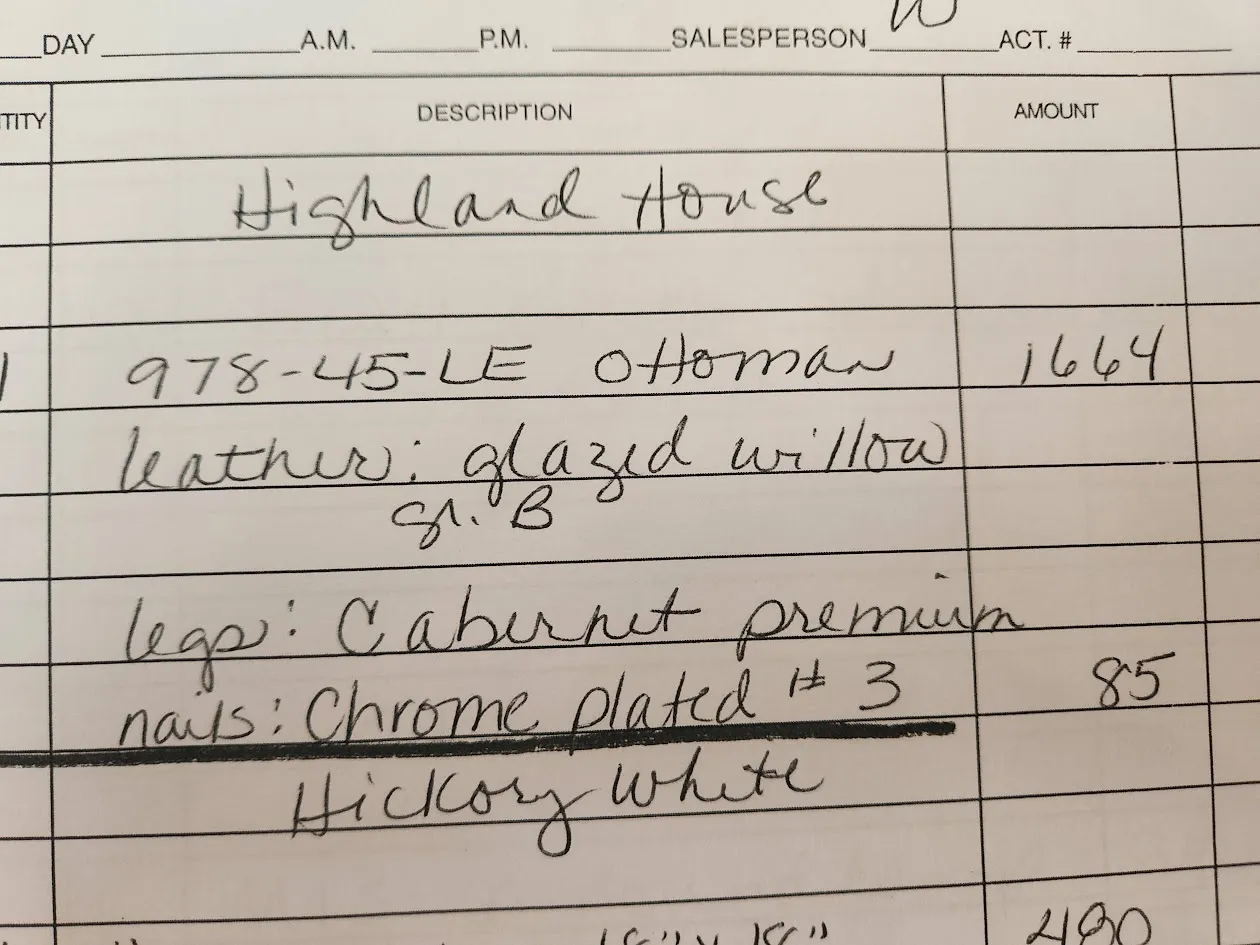 DAY A.M. P.M. SALESPERSON ACT. #
TITY DESCRIPTION AMOUNT
Highland House
1 978-45-LE Ottoman 1664
leather: glazed willow
gr. B
legs: Cabernet premium
nails: Chrome plated # 3 85
Hickory White